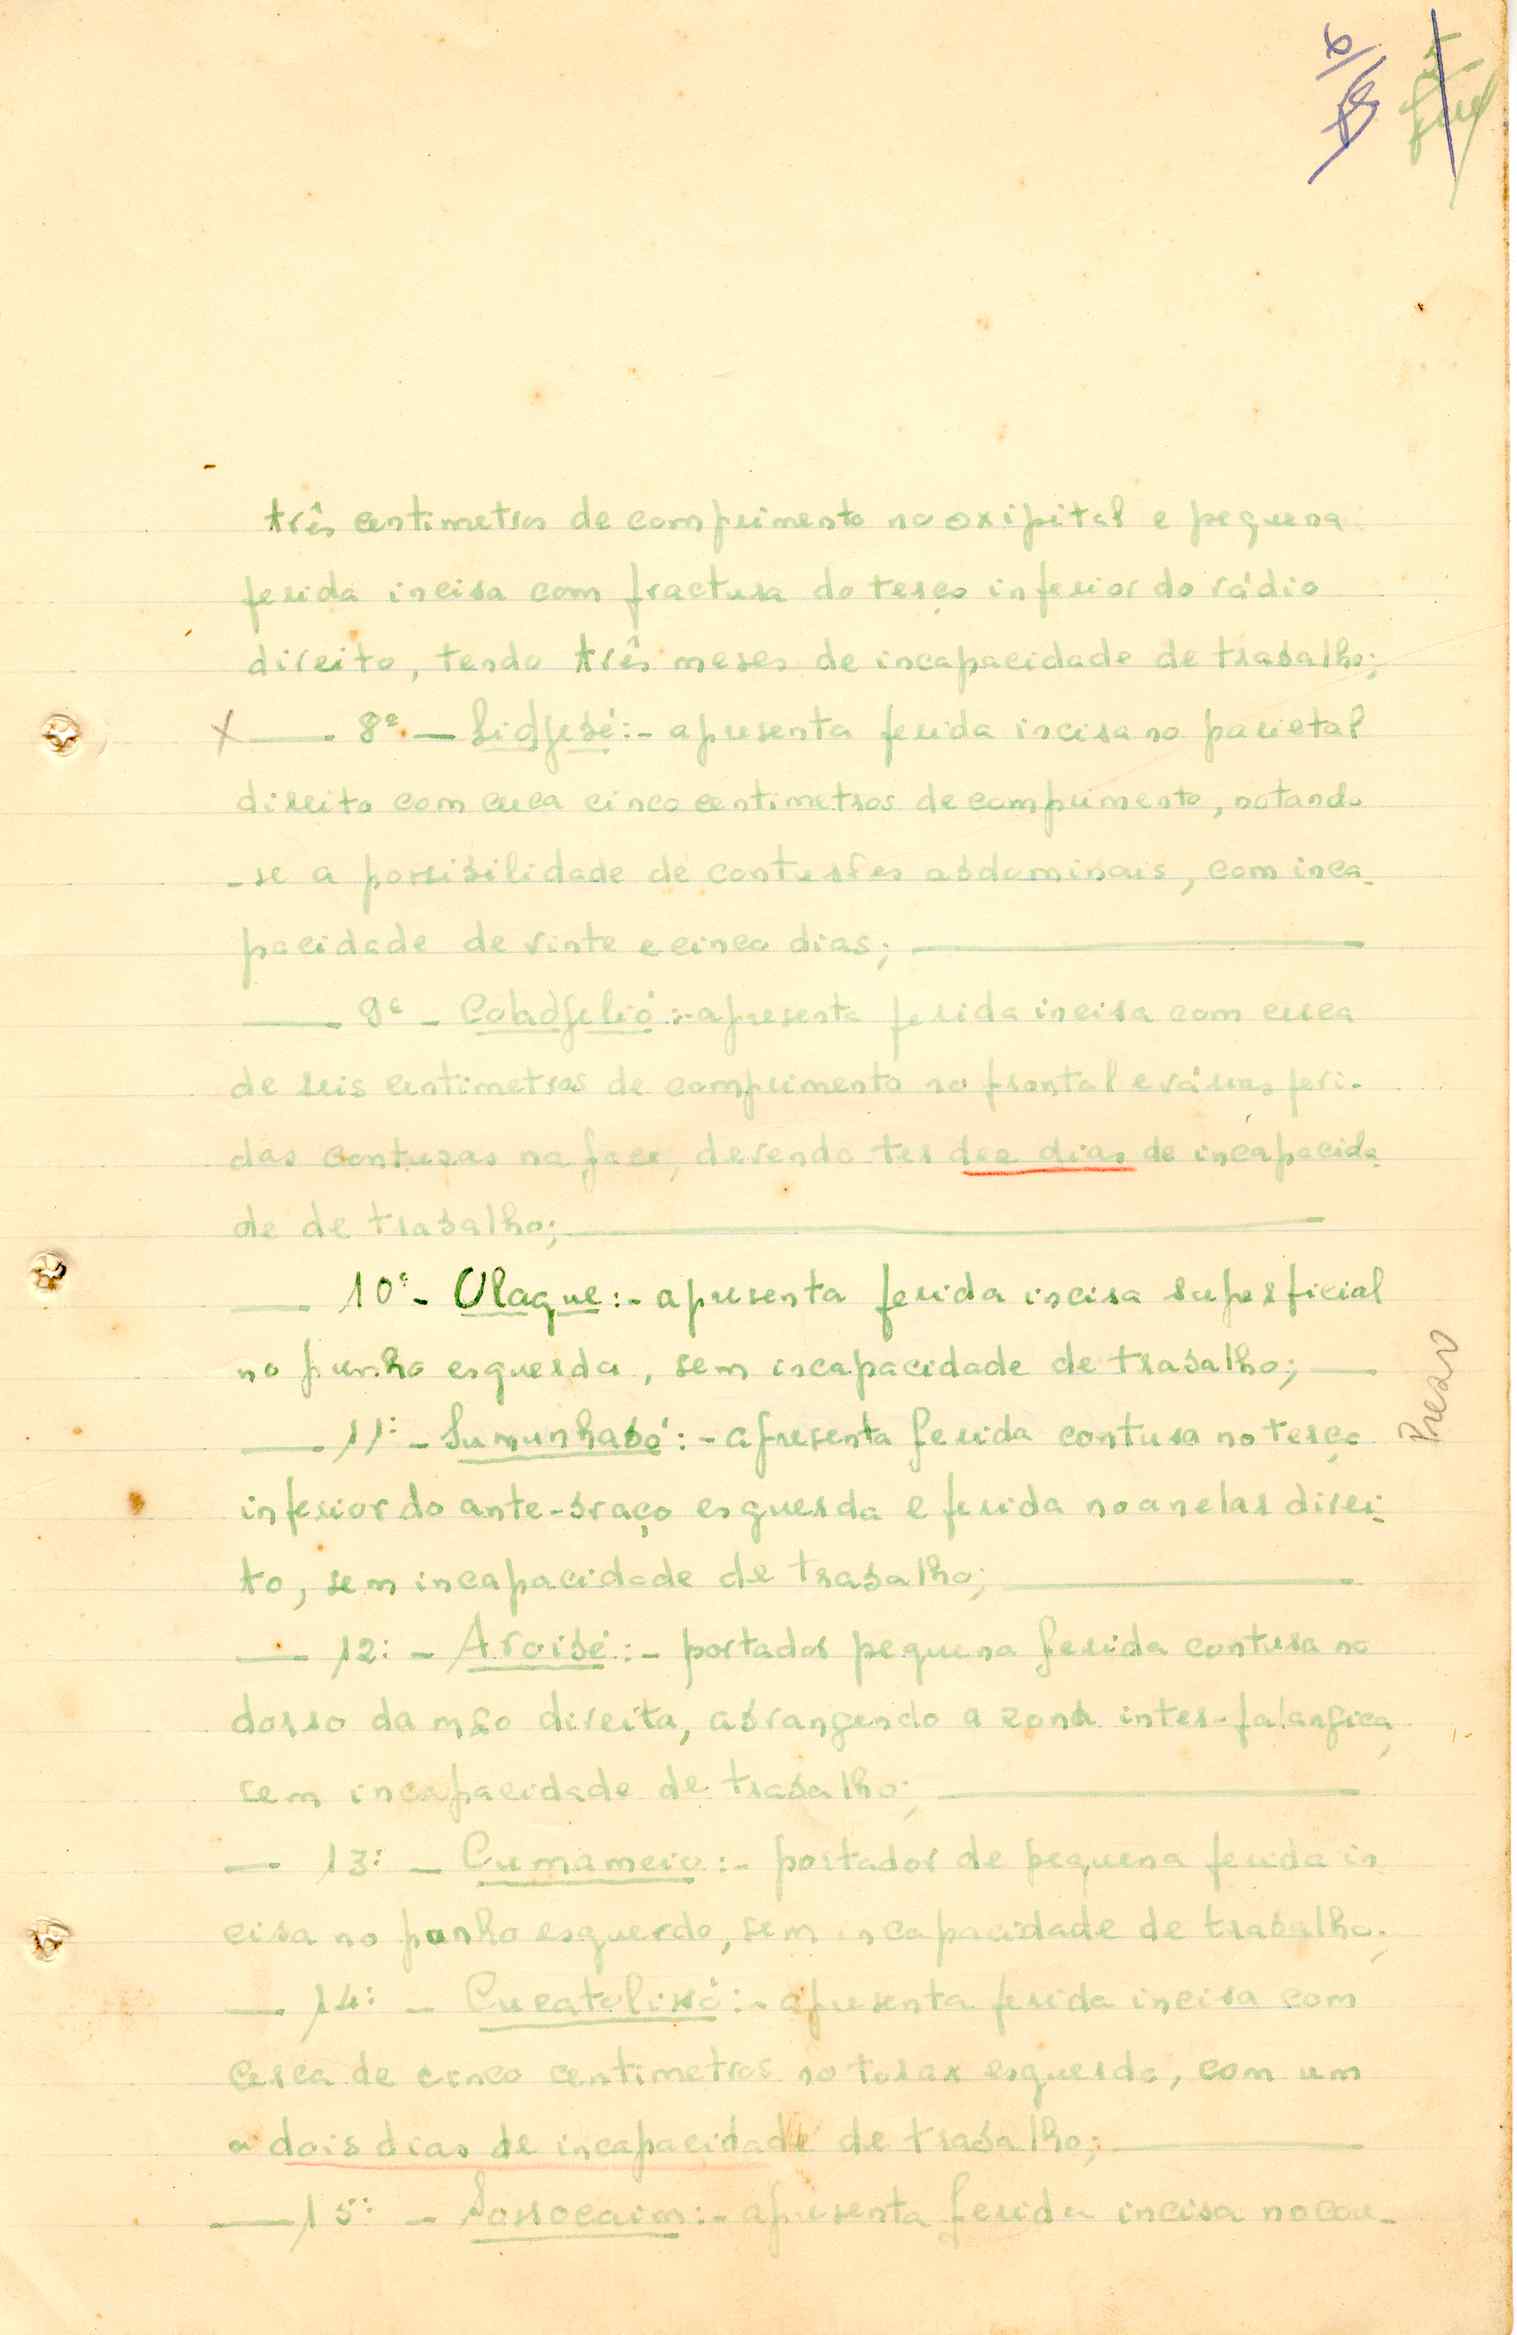 três centimetros de comprimento no oxipital e pequena
ferida incisa com fractura do terço inferior do rádio
direito, tendo três meses de incapacidade de trabalho;
x — 8º — Sidjubé:- apresenta ferida incisa no parietal
direito com cerca cinco centimetros de comprimento, notando
-se a possibilidade de contusões abdominais, com inca-
pacidade de vinte e cinco dias; —
— 9º - Cobadjulió:- apresenta ferida incisa com cerca
de seis centimetros de comprimento no frontal e várias feri-
das contusas na face, devendo ter dez dias de incapacida
de de trabalho; —
— 10º - Olaque:- apresenta ferida incisa superficial
no punho esquerdo, sem incapacidade de trabalho; —
— 11º - Sumunhabó:- apresenta ferida contusa no terço
Preso
inferior do ante-braço esquerdo e ferida no anelar direi-
to, sem incapacidade de trabalho; —
— 12º - Aroibé:- portador pequena ferida contusa no
dorso da mão direita, abrangendo a zona inter-falangica,
sem incapacidade de trabalho; —
— 13º - Cumameio:- portador de pequena ferida in
cisa no punho esquerdo, sem incapacidade de trabalho;
— 14º - Cucatolixó:- apresenta ferida incisa com
cerca de cinco centimetros no torax esquerdo, com um
a dois dias de incapacidade de trabalho; —
— 15º - Sossocaim:- apresenta ferida incisa no cou-